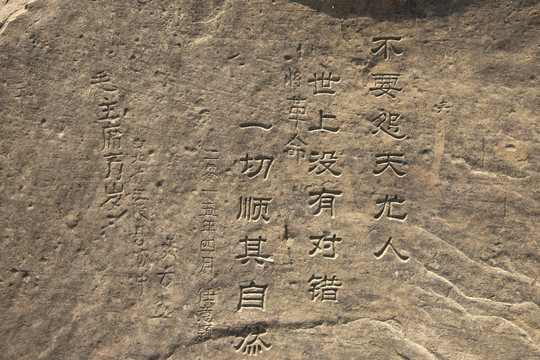 不要怨天尤人
世上没有对错
将革命
一切顺其自然
二零一五年四月
毛主席万岁